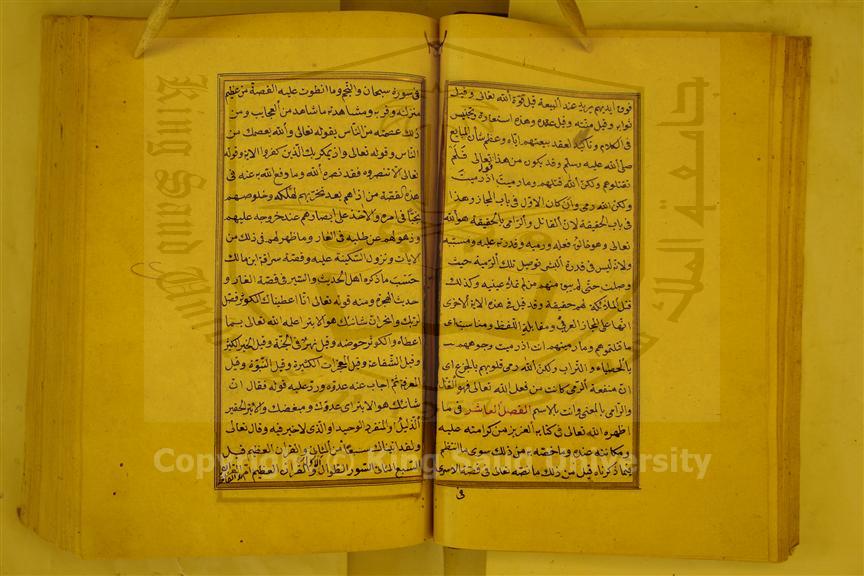 فوق ايديهم يريد عند البيعة قيل قوة الله تعالى وقيل
ثوابه وقيل منته وقيل عقده وهذه استعارة وتجنيس
في الكلام وتأكيد لعقد بيعتهم اياه وعظم شأن المبايع
صلى الله عليه وسلم وقد يكون من هذا قوله تعالى فلم
تقتلوهم ولكن الله قتلهم وما رميت اذ رميت
ولكن الله رمى وان كان الاول في باب المجاز وهذا
في باب الحقيقة لان القاتل والرامي بالحقيقة هو الله
تعالى وهو خالق فعله ورميه وقدرته عليه ومسببه
ولانه ليس في قدرة البشر توصيل تلك الرمية حيث
وصلت حتى لم يبق منهم من لم تملأ عينيه وكذلك
قتل الملائكة لهم حقيقة وقد قيل في هذه الاية الاخرى
انها على المجاز العربي ومقابلة اللفظ ومناسبته اى
ما قتلتموهم وما رميتهم انت اذ رميت وجوههم
بالحصباء والتراب ولكن الله رمى قلوبهم بالجزع اى
ان منفعة الرمي كانت من فعل الله تعالى فهو القاتل
والرامي بالمعنى وانت بالاسم الفصل العاشر في ما
اظهره الله تعالى في كتابه العزيز من كرامته عليه
ومكانته عنده وما خصه به من ذلك سوى ما انتظم
فيما ذكرناه قبل من ذلك ما نصه تعالى في قصة الاسرى
في
في سورة سبحان والنجم وما انطوت عليه القصة من عظيم
منزلته وقربه ومشاهدته ما شاهد من العجايب ومن
ذلك عصمته من الناس بقوله تعالى والله يعصمك من
الناس وقوله تعالى واذ يمكر بك الذين كفروا الاية وقوله
تعالى الا تنصروه فقد نصره الله وما دفع الله به عنه في
هذه القصة من اذاهم بعد تحزبهم لهلكه وخلوصهم
نجيا في امره والاخذ على ابصارهم عند خروجه عليهم
وذهولهم عن طلبه في الغار وما ظهر لهم في ذلك من
الايات ونزول السكينة عليه وقصة سراقة ابن مالك
حسب ما ذكره اهل الحديث والسير في قصة الغار و
حديث الهجرة ومنه قوله تعالى انا اعطيناك الكوثر فصل
لربك وانحر ان شانئك هو الابتر اعلمه الله تعالى بما
اعطاه والكوثر حوضه وقيل نهر في الجنة وقيل الخير الكثير
وقيل الشفاعة وقيل المعجزات الكثيرة وقيل النبوة وقيل
المعرفة ثم اجاب عنه عدوه ورد عليه قوله فقال ان
شانئك هو الابتر اى عدوك ومبغضك والابتر الحقير
الذليل او المنفرد الوحيد او الذى لا خير فيه وقال تعالى
ولقد اتيناك سبعا من المثاني والقران العظيم قيل
السبع المثاني السور الطوال والقران العظيم ام القران
جامعة الملك
King Saud
Copyright © King Saud University